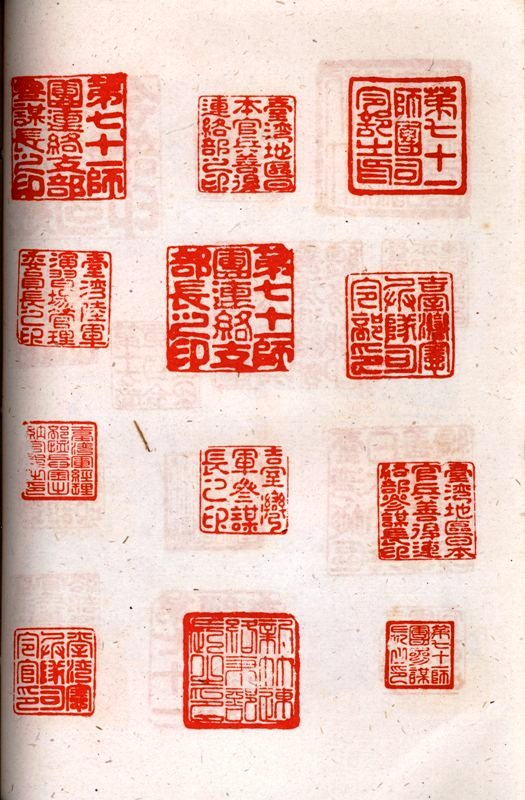 第七十一
師團司
令部之印
臺湾地區日
本官兵善後
連絡部之印
第七十一師
團連絡支部
參謀長之印
臺灣憲
兵隊司
令部印
第七十師
團連絡支
部長之印
臺湾陸軍
演習場管理
委員長之印
臺湾地區日本
官兵善後連
絡部參謀長印
臺灣
軍參謀
長之印
臺湾軍經理
第七十師
團參謀
長之印
新竹連
長之印
臺湾憲
兵隊司
令官印